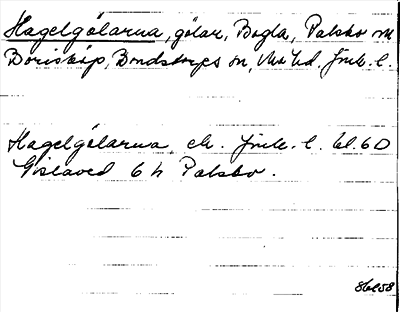 Hagelgölarna, gölar, Bogla, Palsbo m
Boriskip, Bondstorps sn, Mo hd, Jmk. l.
Hagelgölarna ek. Jmk. l. bl. 6D
Gislaved 6 h Palsbo.